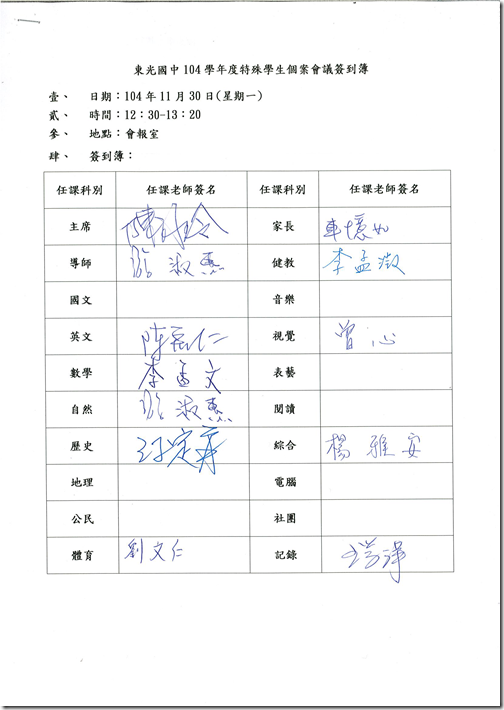 東光國中 104 學年度特殊學生個案會議簽到簿
壹、 日期：104 年 11 月 30 日(星期一)
貳、 時間：12：30-13：20
參、 地點：會報室
肆、 簽到簿：
任課科別 任課老師簽名 任課科別 任課老師簽名
主席 家長 車憶如
導師 淑惠 健教 李孟澂
國文 音樂
英文 視覺 曾心
數學 李孟文 表藝
自然 淑惠 閱讀
歷史 綜合 楊雅安
地理 電腦
公民 社團
體育 劉文仁 記錄